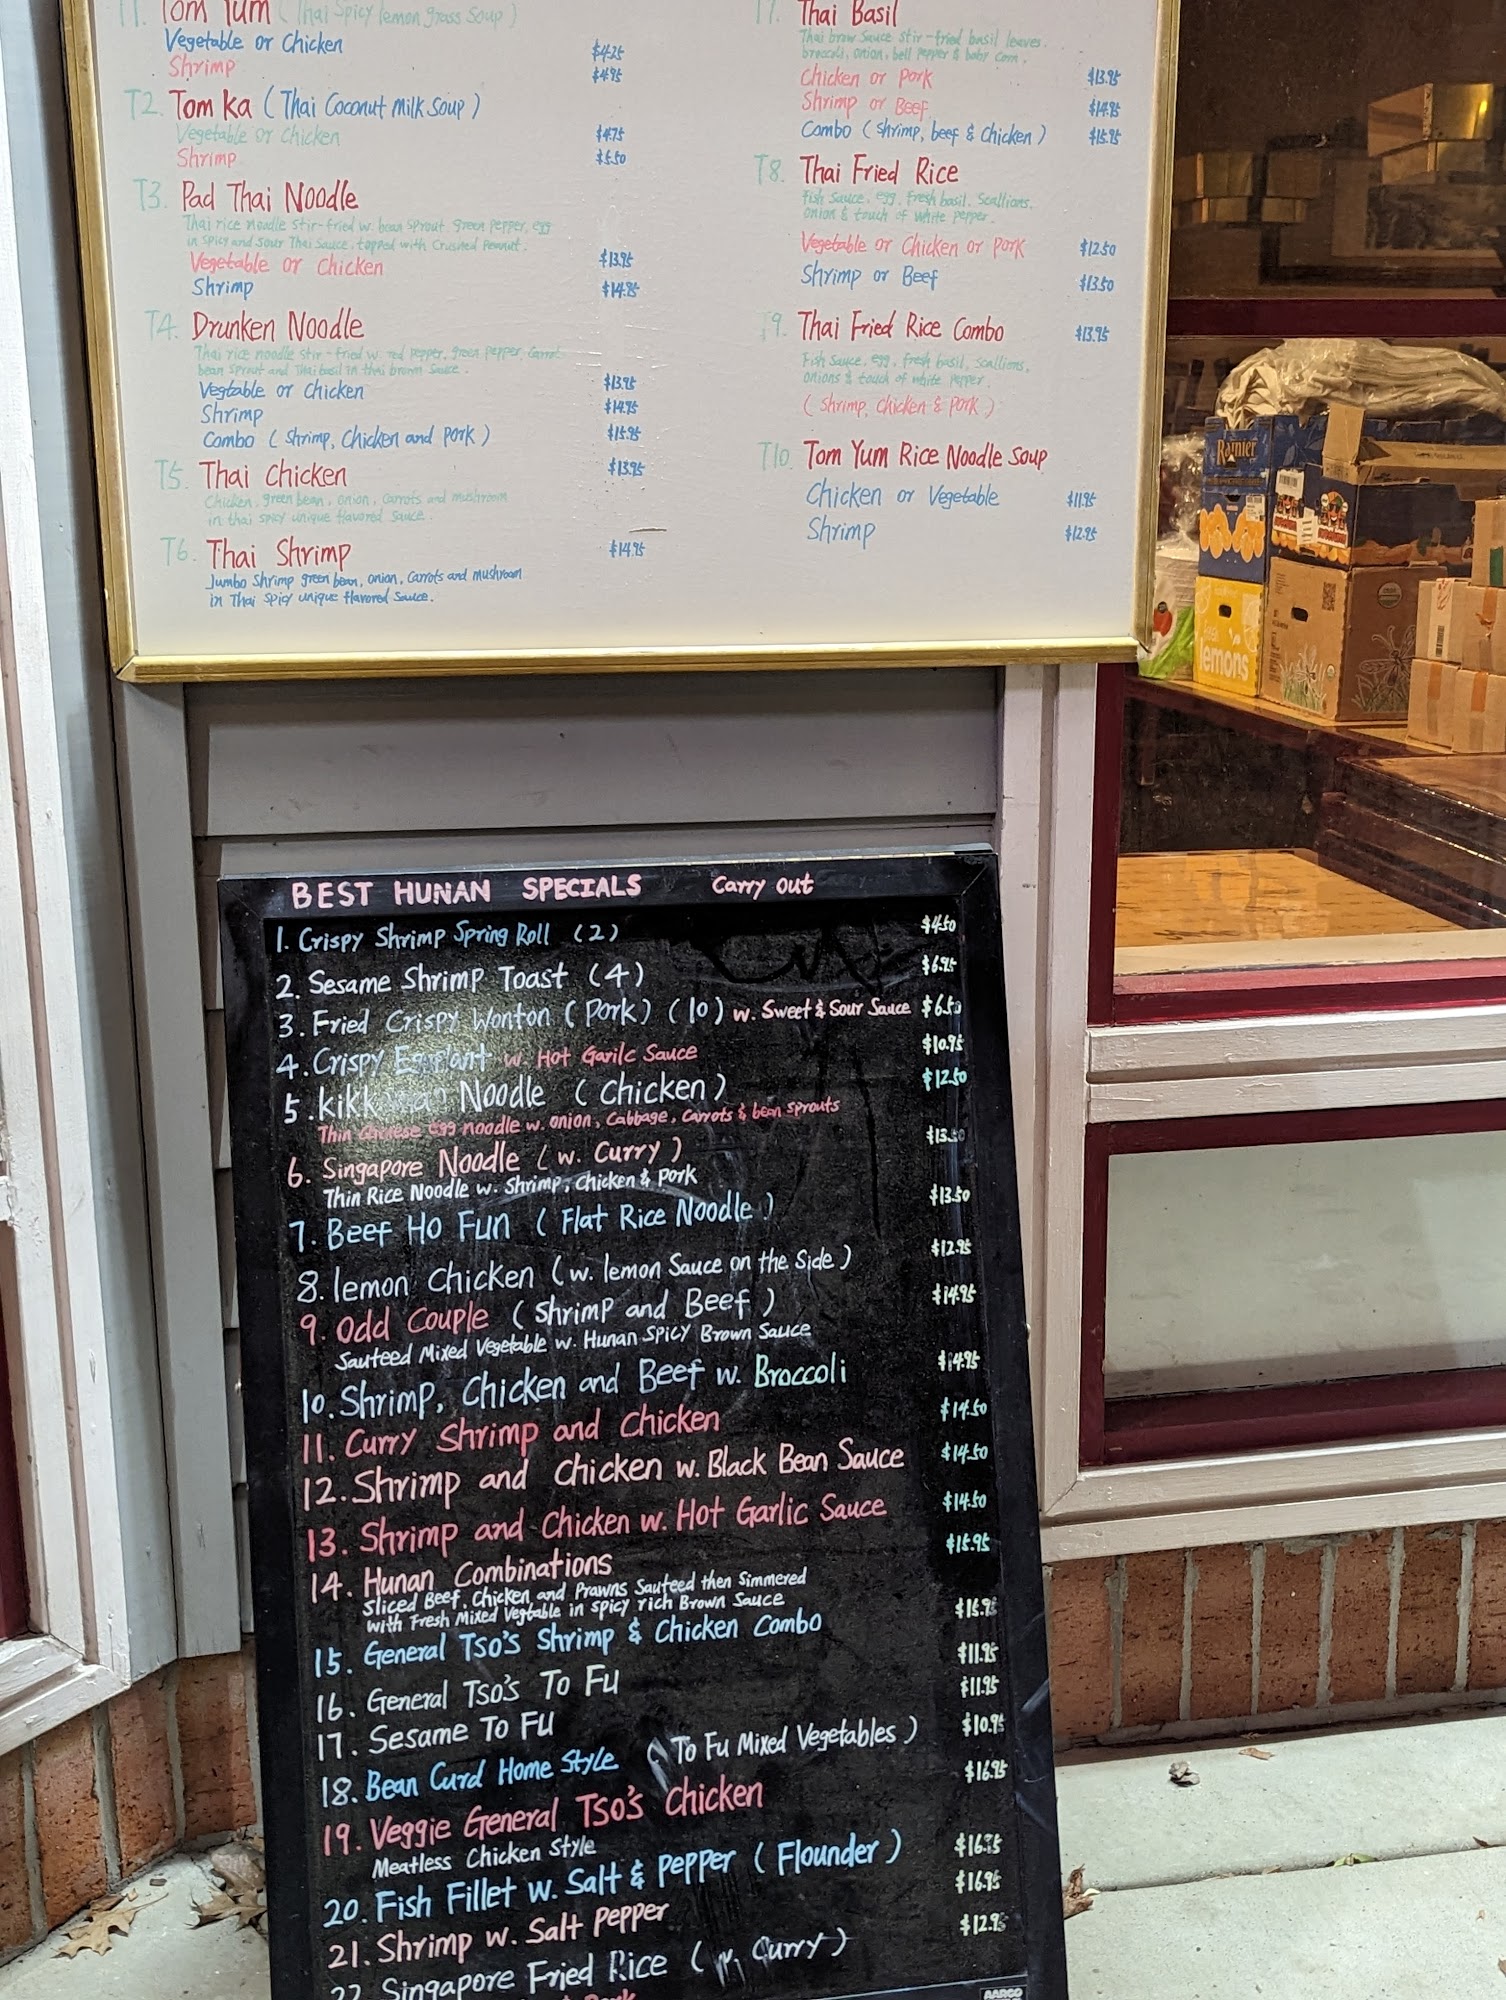 T1. Tom Yum (Thai Spicy lemon grass Soup)
Vegetable or Chicken $4.25
Shrimp $4.95
T2. Tom Ka (Thai Coconut Milk Soup)
Vegetable or Chicken $4.75
Shrimp $5.50
T3. Pad Thai Noodle
Thai rice noodle stir-fried w. bean sprout, green pepper, egg
in spicy and sour Thai Sauce, topped with Crushed Peanut.
Vegetable or Chicken $13.95
Shrimp $14.95
T4. Drunken Noodle
Thai rice noodle stir-fried w. red pepper, green pepper, Carrot
bean sprout and Thai basil in thai brown Sauce.
Vegtable or Chicken $13.95
Shrimp $14.95
Combo (Shrimp, Chicken and Pork) $15.95
T5. Thai Chicken $13.95
Chicken, green bean, onion, Carrots and mushroom
in thai spicy unique flavored Sauce.
T6. Thai Shrimp $14.95
Jumbo Shrimp green bean, onion, Carrots and mushroom
in Thai Spicy unique flavored Sauce.
T7. Thai Basil
Thai brow Sauce stir-fried basil leaves.
broccoli, onion, bell pepper & baby Corn.
Chicken or Pork $13.95
Shrimp or Beef $14.95
Combo (Shrimp, beef & Chicken) $15.95
T8. Thai Fried Rice
Fish Sauce, egg, Fresh basil, Scallions,
onion & touch of white pepper.
Vegetable or Chicken or Pork $12.50
Shrimp or Beef $13.50
T9. Thai Fried Rice Combo $13.95
Fish Sauce, egg, fresh basil, Scallions,
onions & touch of white pepper.
(Shrimp, Chicken & Pork)
T10. Tom Yum Rice Noodle Soup
Chicken or Vegetable $11.95
Shrimp $12.95
Rainier
fresh
lemons
BEST HUNAN SPECIALS Carry out
1. Crispy Shrimp Spring Roll (2) $4.50
2. Sesame Shrimp Toast (4) $6.95
3. Fried Crispy Wonton (Pork) (10) w. Sweet & Sour Sauce $6.50
4. Crispy Eggplant w. Hot Garilc Sauce $10.95
5. Noodle (Chicken) $12.50
Thin Chinese egg noodle w. onion, Cabbage, Carrots & bean sprouts
6. Singapore Noodle (w. Curry) $13.50
Thin Rice Noodle w. Shrimp, Chicken & Pork
7. Beef Ho Fun (Flat Rice Noodle) $13.50
8. lemon Chicken (w. lemon Sauce on the Side) $12.95
9. Odd Couple (Shrimp and Beef) $14.95
Sauteed Mixed Vegetable w. Hunan Spicy Brown Sauce
10. Shrimp, Chicken and Beef w. Broccoli $14.95
11. Curry Shrimp and Chicken $14.50
12. Shrimp and Chicken w. Black Bean Sauce $14.50
13. Shrimp and Chicken w. Hot Garlic Sauce $14.50
14. Hunan Combinations $15.95
Sliced Beef, Chicken and Prawns Sauteed then Simmered
with Fresh Mixed Vegtable in spicy rich Brown Sauce
15. General Tso's Shrimp & Chicken Combo $15.95
16. General Tso's To Fu $11.95
17. Sesame To Fu $11.95
18. Bean Curd Home Style (To Fu Mixed Vegetables) $10.95
19. Veggie General Tso's Chicken $16.95
Meatless Chicken Style
20. Fish Fillet w. Salt & Pepper (Flounder) $16.95
21. Shrimp w. Salt Pepper $16.95
22. Singapore Fried Rice (w. Curry) $12.95
& Pork
AARCO